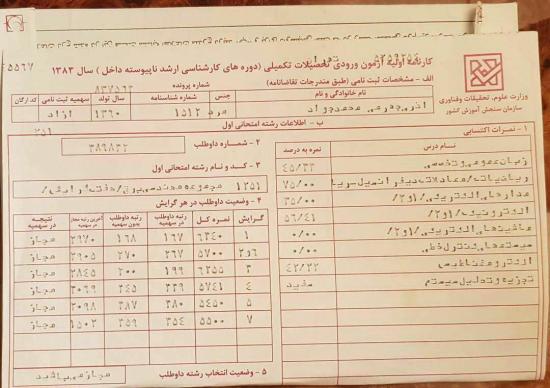 کارنامه اولیه آزمون ورودی تحصیلات تکمیلی (دوره های کارشناسی ارشد ناپیوسته داخل) سال ۱۳۸۳
وزارت علوم، تحقیقات و فناوری
سازمان سنجش آموزش کشور
الف - مشخصات ثبت نامی (طبق مندرجات تقاضانامه)
شماره پرونده
۸۳۷۵۶۲
نام خانوادگی و نام جنس شماره شناسنامه سال تولد سهمیه ثبت نامی کد ارگان
محمدجواد مرد ۱۵۱۲ ۱۳۶۰ آزاد
ب - اطلاعات رشته امتحانی اول
۲۵۱
۱ - نمرات اکتسابی
نام درس نمره به درصد
زبان عمومی و تخصصی ۴۵/۳۳
ریاضیات/معادلات دیفرانسیل ۷۵/۰۰
مدارهای الکتریکی /۱و۲/ ۳۵/۰۰
الکترونیک /۱و۲/ ۵۶/۴۱
ماشینهای الکتریکی /۱و۲/ ۰/۰۰
سیستمهای کنترل خطی ۰/۰۰
الکترومغناطیس ۴۲/۲۲
تجزیه و تحلیل سیستم سفید
۲ - شماره داوطلب
۳۸۹۸۳۲
۳ - کد و نام رشته امتحانی اول
۱۲۵۱ مجموعه مهندسی برق
۴ - وضعیت داوطلب در هر گرایش
گرایش نمره کل رتبه داوطلب در سهمیه رتبه داوطلب بدون سهمیه آخرین رتبه مجاز در سهمیه نتیجه در سهمیه
۱ ۶۳۴۰ ۱۶۷ ۱۶۸ ۲۹۷۰ مجاز
۲و۶ ۵۷۰۰ ۲۶۷ ۲۷۰ ۲۹۰۵ مجاز
۳ ۶۲۵۵ ۱۹۹ ۲۰۰ ۲۸۴۵ مجاز
۴ ۵۷۴۱ ۴۳۹ ۴۴۵ ۳۰۶۹ مجاز
۵ ۵۴۵۰ ۳۸۰ ۳۸۷ ۳۰۹۸ مجاز
۷ ۵۵۰۰ ۳۵۴ ۳۵۹ ۱۵۰۳ مجاز
۵ - وضعیت انتخاب رشته داوطلب
مجاز می باشید